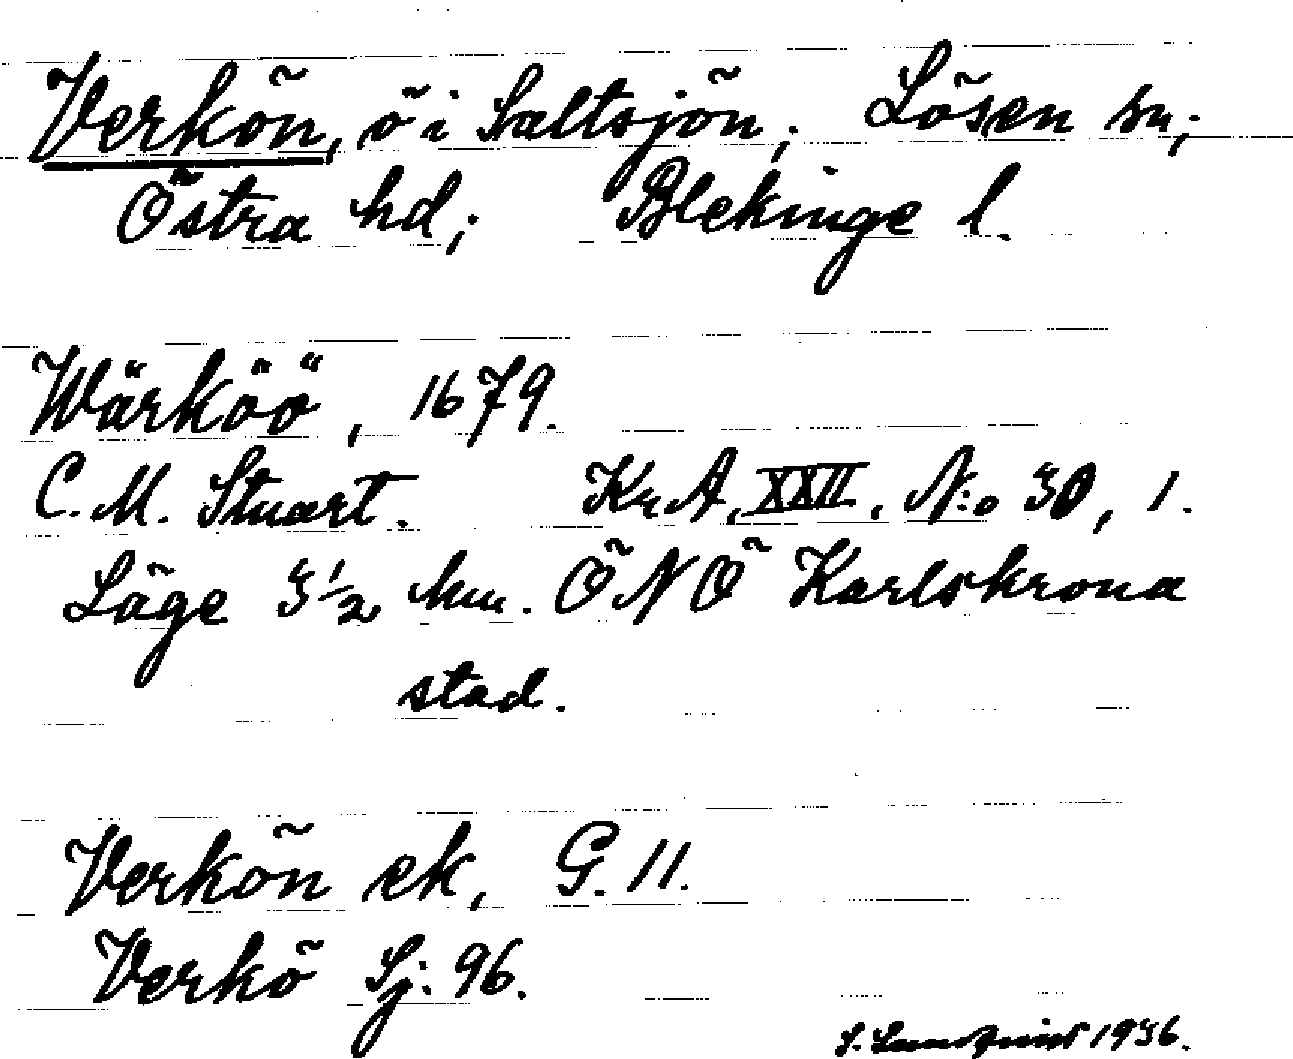 Verkön, ö i Saltsjön; Lösen sn;
Östra hd; Blekinge l.
Wärköö, 1679.
C. M. Stuart. Kr.A. XXII. N:o 30, 1.
Läge 3 1/2 km. ÖNÖ Karlskrona
stad.
Verkön ek, G. 11.
Verkö Sj. 96.
S. 1936.